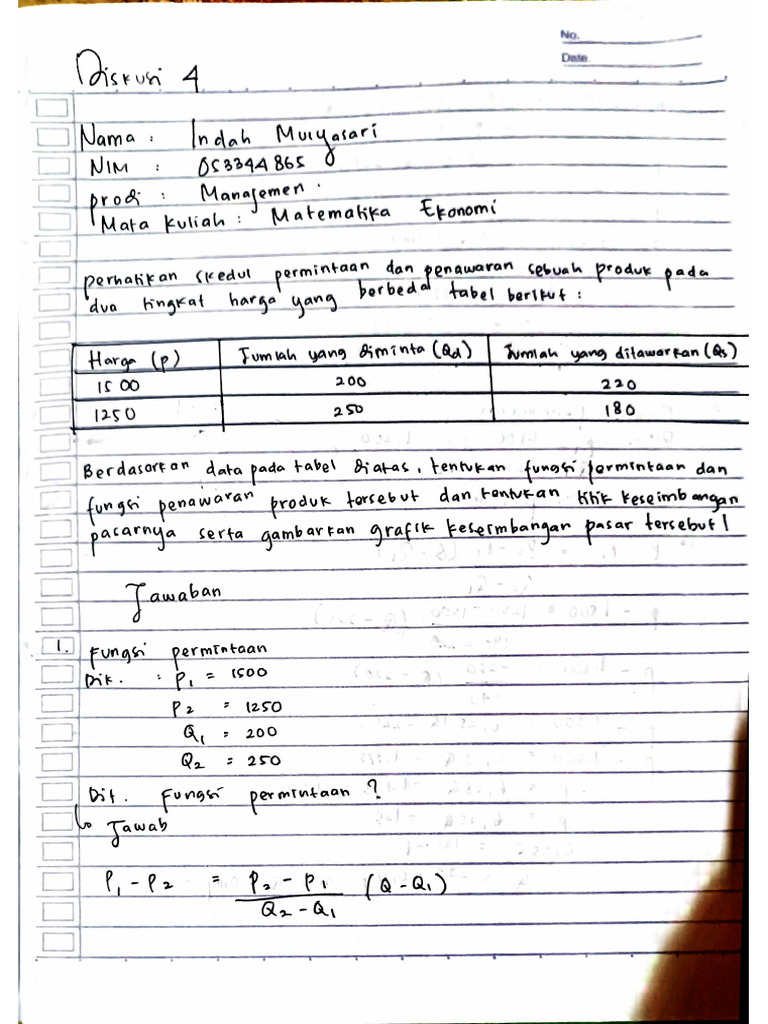 No.
Date.
Diskusi 4
Nama : Indah Mulyasari
NIM : 053344865
prodi : Manajemen.
Mata Kuliah : Matematika Ekonomi
perhatikan skedul permintaan dan penawaran sebuah produk pada
dua tingkat harga yang berbeda! tabel berikut :
Harga (p) Jumlah yang diminta (Qd) Jumlah yang ditawarkan (Qs)
1500 200 220
1250 250 180
Berdasarkan data pada tabel diatas, tentukan fungsi permintaan dan
fungsi penawaran produk tersebut dan tentukan titik keseimbangan
pasarnya serta gambarkan grafik keseimbangan pasar tersebut!
Jawaban
1. Fungsi permintaan
Dik. : P1 = 1500
P2 = 1250
Q1 = 200
Q2 = 250
Dit. Fungsi permintaan ?
↳ Jawab
P1 - P2 = P2 - P1 (Q - Q1)
Q2 - Q1